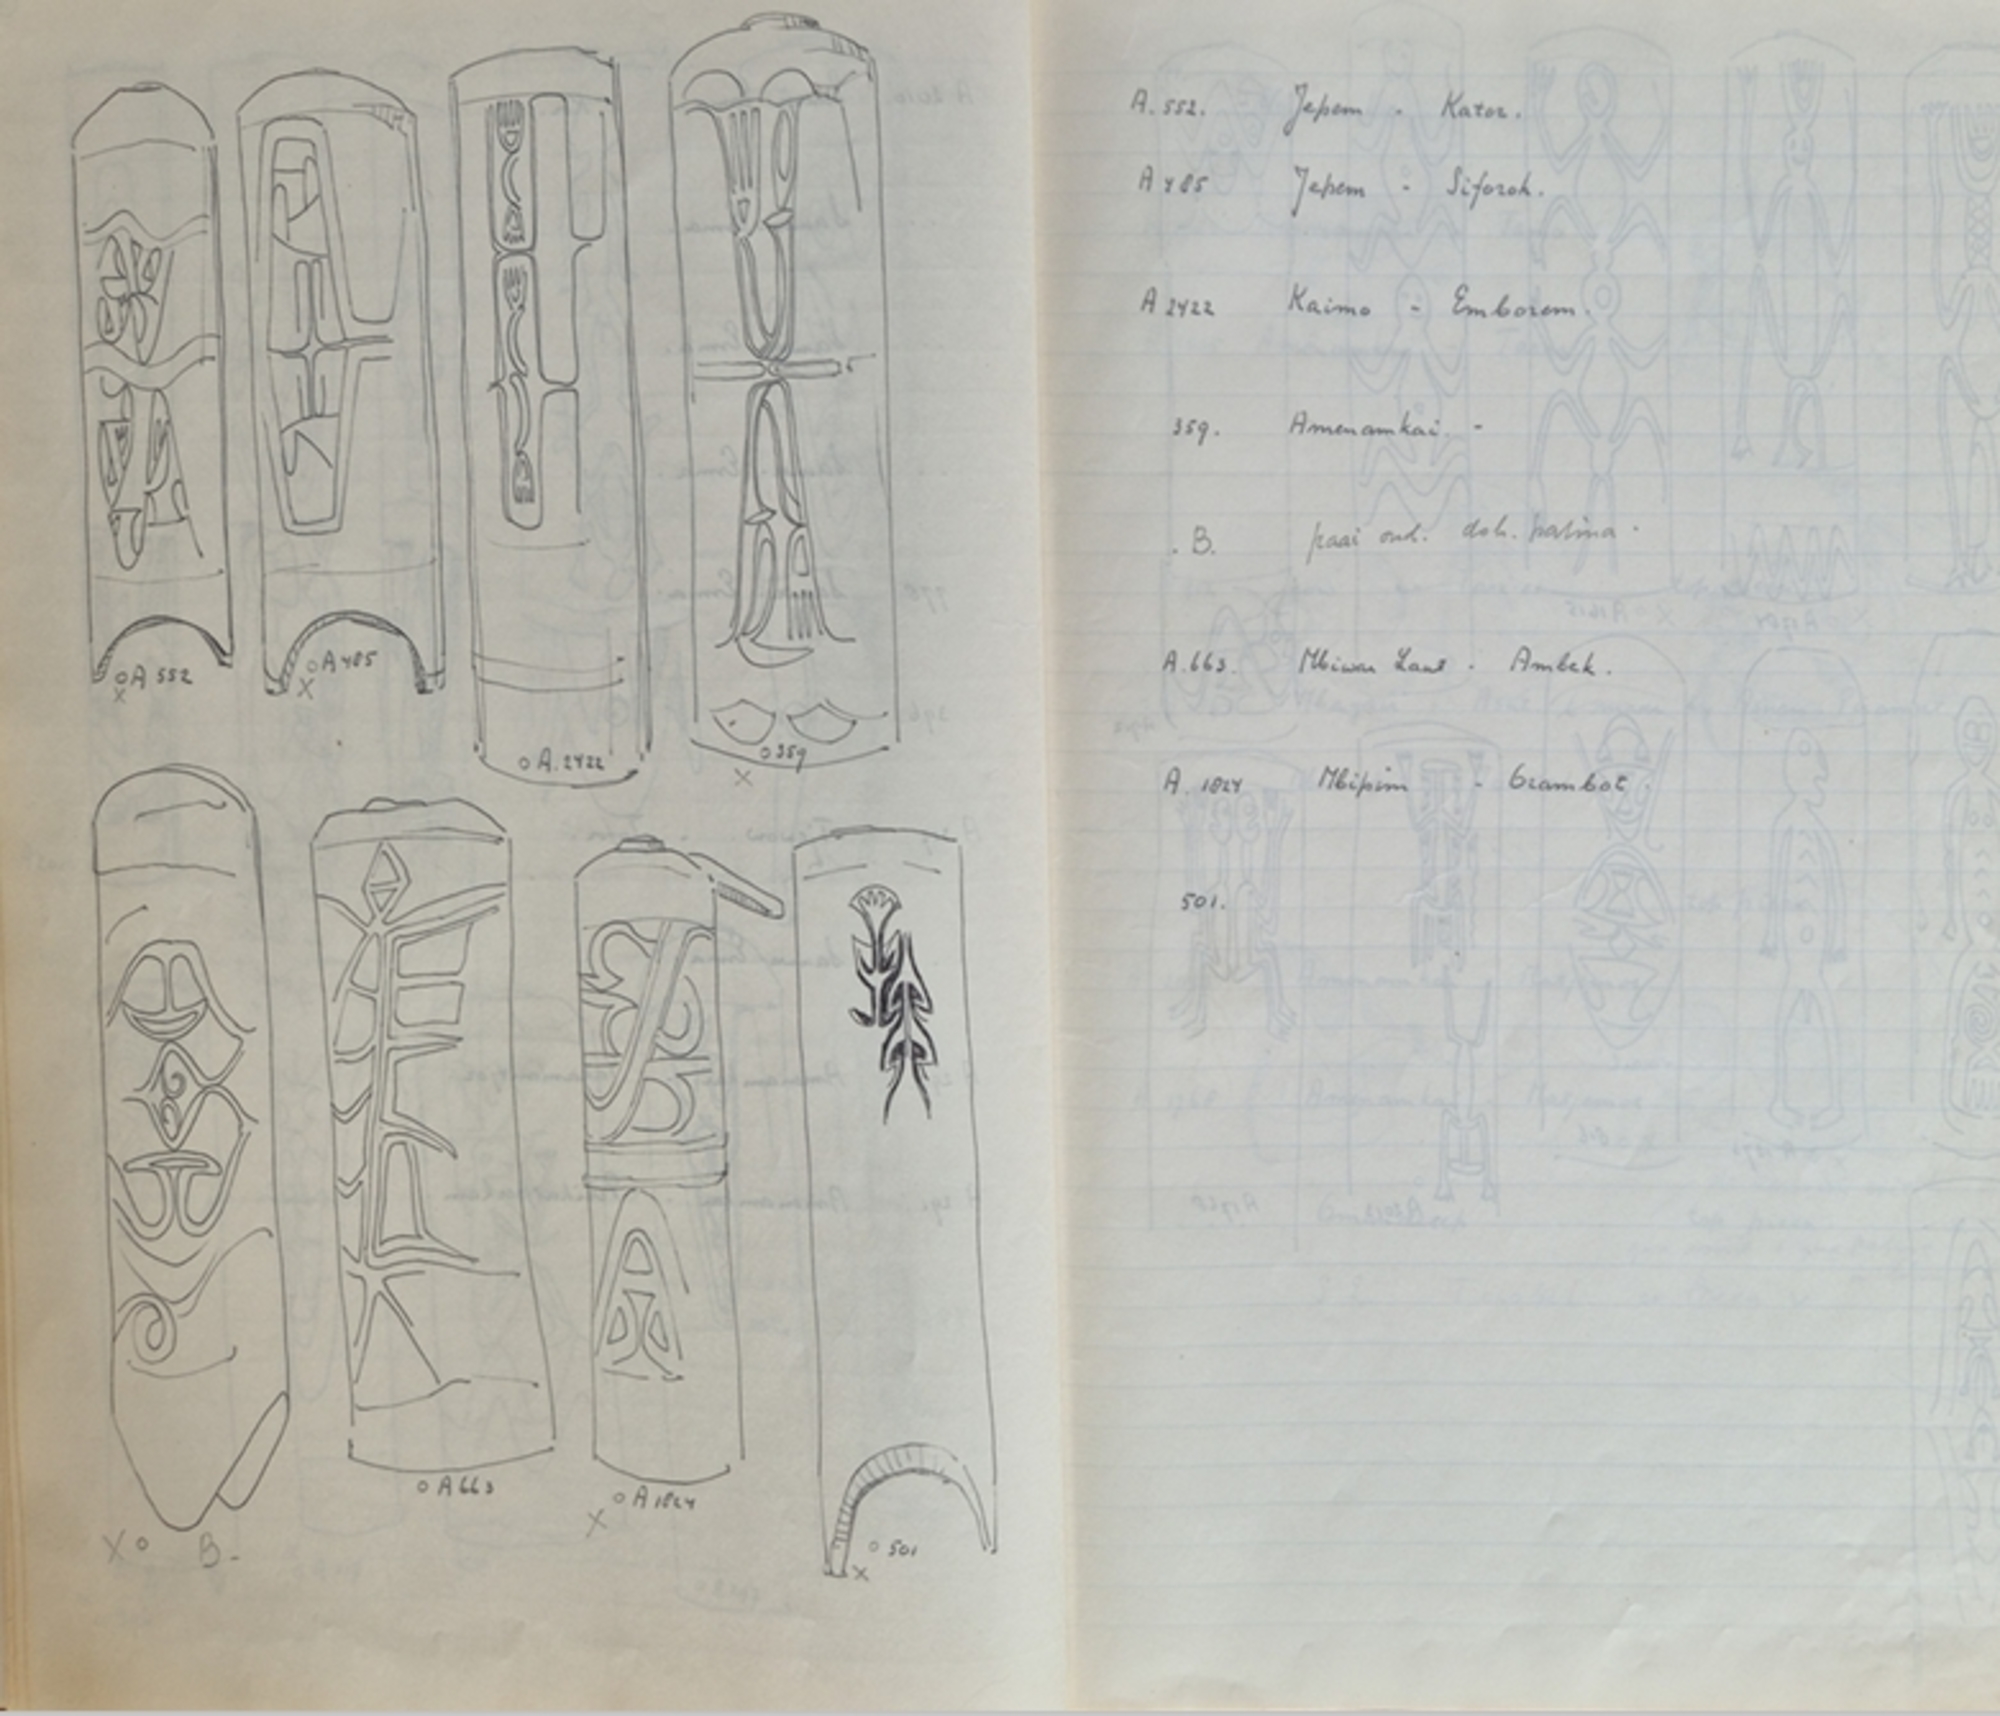 A 552
A 485
A. 2422
359
X
X
X
B.
A 663
A 1824
501
X
X
X
A. 552. Jepem - Kator.
A 485 Jepem - Siforok.
A 2422 Kaimo - Emborem.
359. Amenamkai. -
. B. paai oud. dok. patina.
A. 663. Mbiwar Laut - Ambek.
A. 1824 Mbipim - Grambot.
501.